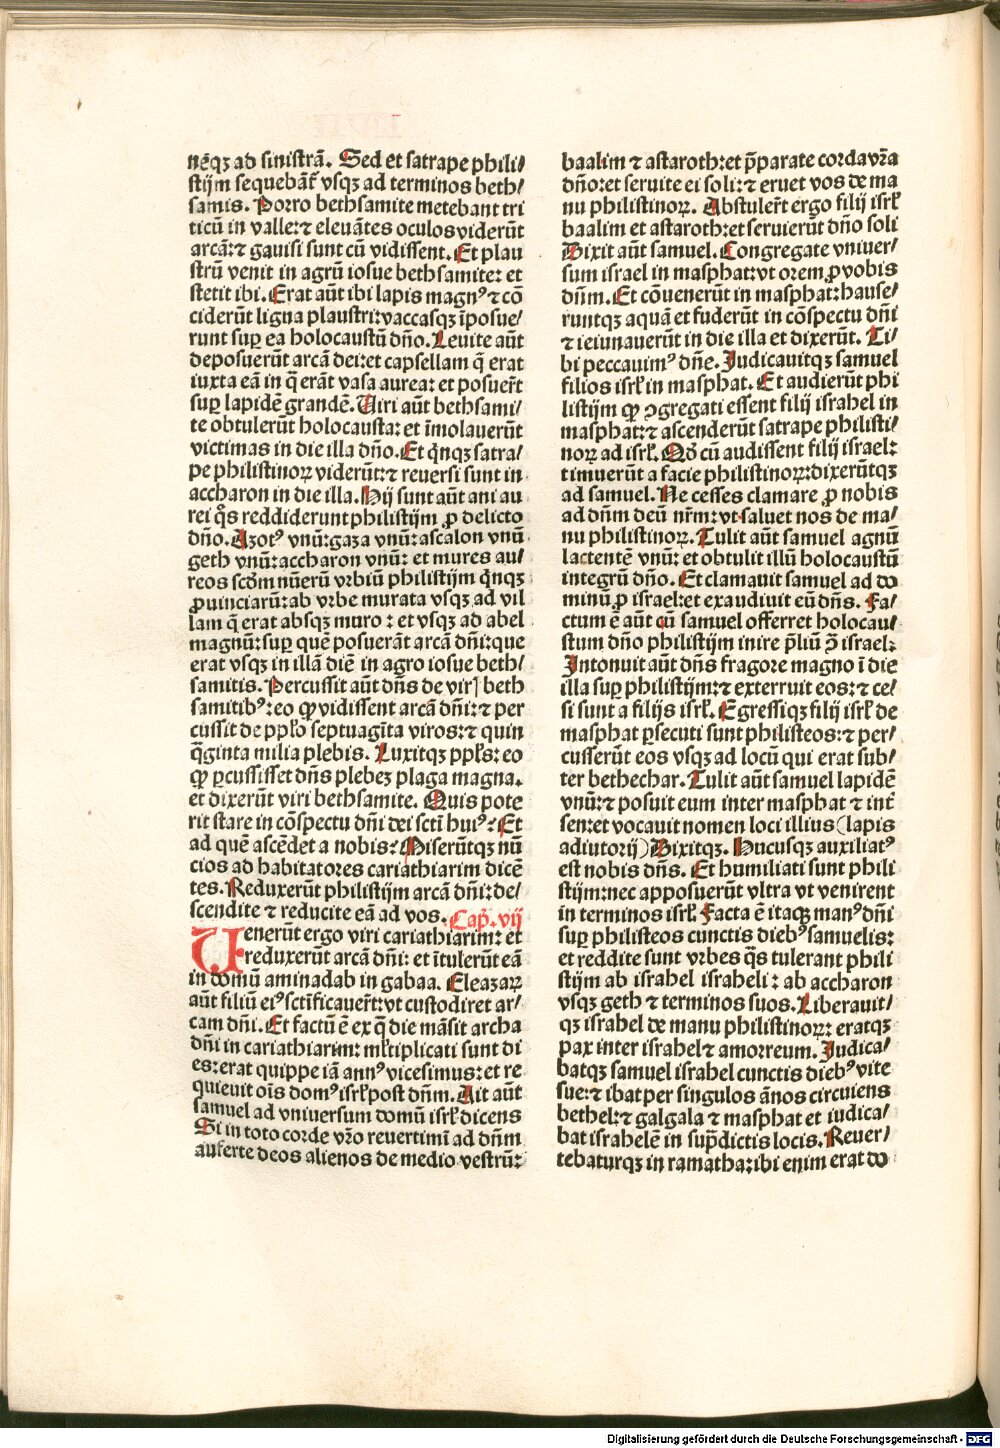 nēqꝫ ad sinistrā. Sed et satrape phili⸗
stijm sequebāt᷑ vsqꝫ ad terminos beth⸗
samis. Porro bethsamite metebant tri
ticū in valle:⁊ eleuātes oculos viderūt
arcā:⁊ gauisi sunt cū vidissent. Et plau
strū venit in agrū iosue bethsamite: et
stetit ibi. Erat aūt ibi lapis magnꝰ ⁊ cō
ciderūt ligna plaustri:vaccasqꝫ īposue⸗
runt suꝑ ea holocaustū dño. Leuite aūt
deposuerūt arcā dei:et capsellam q̄ erat
iuxta eā in q̄ erāt vasa aurea: et posuer̄t
suꝑ lapidē grandē. Uiri aūt bethsami⸗
te obtulerūt holocausta: et īmolauerūt
victimas in die illa dño. Et qͥnqꝫ satra⸗
pe philistinoꝝ viderūt:⁊ reuersi sunt in
accharon in die illa. Hij sunt aūt ani au
rei qͦs reddiderunt philistijm ꝓ delicto
dño. Azotꝰ vnū:gaza vnū:ascalon vnū
geth vnū:accharon vnū: et mures au⸗
reos scđm nūerū vrbiū philistijm qͥnqꝫ
ꝓuinciarū:ab vrbe murata vsqꝫ ad vil
lam q̄ erat absqꝫ muro : et vsqꝫ ad abel
magnū:suꝑ quē posuerāt arcā dñi:que
erat vsqꝫ in illā diē in agro iosue beth⸗
samitis. Percussit aūt dñs de virꝭ beth
samitibꝰ:eo ꝙ vidissent arcā dñi:⁊ per
cussit de ppło septuagīta viros:⁊ quin
q̄ginta milia plebis. Luxitqꝫ ppłs: eo
ꝙ ꝑcussisset dñs plebeꝫ plaga magna.
et dixerūt viri bethsamite. Quis pote
rit stare in cōspectu dñi dei scti huiꝰ? Et
ad quē ascēdet a nobis? Miserūtqꝫ nū
cios ad habitatores cariathiarim dicē
tes. Reduxerūt philistijm arcā dñi:de⸗
scendite ⁊ reducite eā ad vos. Cap̄. vij
Uenerūt ergo viri cariathiarim: et
reduxerūt arcā dñi: et ītulerūt eā
in domū aminadab in gabaa. Eleazaꝝ
aūt filiū eiꝰ sctīficauer̄t:vt custodiret ar⸗
cam dñi. Et factū ē ex q̄ die māsit archa
dñi in cariathiarim: młtiplicati sunt di
es:erat quippe iā annꝰ vicesimus:et re
quieuit oīs domꝰ isrł post dñm. Ait aūt
samuel ad vniuersum domū isrł dicens
Si in toto corde vr̄o reuertimī ad dñm
auferte deos alienos de medio vestrū:
baalim ⁊ astaroth:et p̄parate corda vr̄a
dño:et seruite ei soli:⁊ eruet vos de ma
nu philistinoꝝ. Abstuler̄t ergo filij isrł
baalim et astaroth:et seruierūt dño soli
Dixit aūt samuel. Congregate vniuer⸗
sum israel in masphat:vt orem ꝓ vobis
dñm. Et cōuenerūt in masphat:hause⸗
runtqꝫ aquā et fuderūt in cōspectu dñi
⁊ ieiunauerūt in die illa et dixerūt. Ti⸗
bi peccauimꝰ dñe. Judicauitqꝫ samuel
filios isrł in masphat. Et audierūt phi
listijm ꝙ ꝯgregati essent filij israhel in
masphat:⁊ ascenderūt satrape philisti⸗
noꝝ ad isrł. Qđ cū audissent filij israel:
timuerūt a facie philistinoꝝ:dixerūtqꝫ
ad samuel. Ne cesses clamare ꝓ nobis
ad dñm deū nr̄m:vt saluet nos de ma⸗
nu philistinoꝝ. Tulit aūt samuel agnū
lactentē vnū: et obtulit illū holocaustū
integrū dño. Et clamauit samuel ad do
minū ꝓ israel:et exaudiuit eū dñs. Fa⸗
ctum ē aūt cū samuel offerret holocau⸗
stum dño philistijm inire p̄liū ꝯ̄ israel:
Intonuit aūt dñs fragore magno ī die
illa suꝑ philistijm:⁊ exterruit eos:⁊ ce⸗
si sunt a filijs isrł. Egressiqꝫ filij isrł de
masphat ꝑsecuti sunt philisteos:⁊ per⸗
cusserūt eos vsqꝫ ad locū qui erat sub⸗
ter bethechar. Tulit aūt samuel lapidē
vnū:⁊ posuit eum inter masphat ⁊ int᷑
sen:et vocauit nomen loci illius (lapis
adiutorij) Dixitqꝫ. Hucusqꝫ auxiliatꝰ
est nobis dñs. Et humiliati sunt phili
stijm:nec apposuerūt vltra vt venirent
in terminos isrł. Facta ē itaqꝫ manꝰ dñi
suꝑ philisteos cunctis diebꝰ samuelis:
et reddite sunt vrbes q̄s tulerant phili
stijm ab israhel israheli : ab accharon
vsqꝫ geth ⁊ terminos suos. Liberauit⸗
qꝫ israhel de manu philistinoꝝ: eratqꝫ
pax inter israhel ⁊ amorreum. Judica⸗
batqꝫ samuel israhel cunctis diebꝰ vite
sue:⁊ ibat per singulos ānos circuiens
bethel:⁊ galgala ⁊ masphat et iudica⸗
bat israhelē in sup̄dictis locis. Reuer⸗
tebaturqꝫ in ramatha:ibi enim erat do
Digitalisierung gefördert durch die Deutsche Forschungsgemeinschaft - DFG